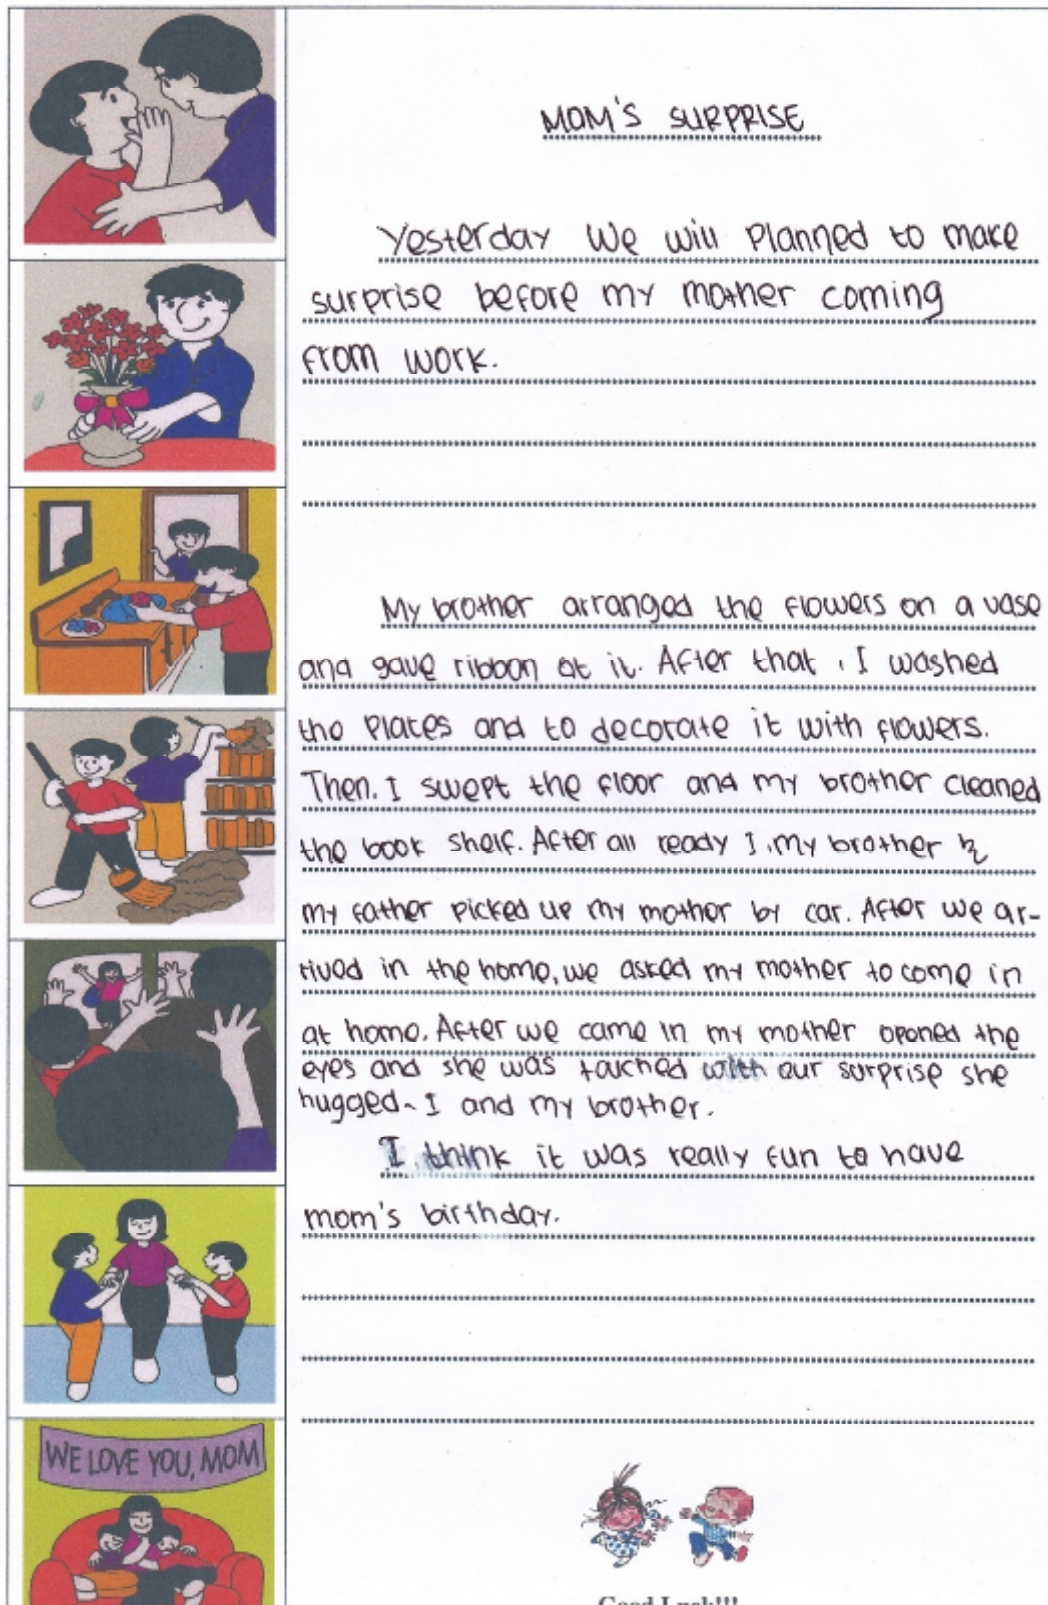 MOM'S SURPRISE
Yesterday we will planned to make
surprise before my mother coming
from work.
My brother arranged the flowers on a vase
and gave ribbon at it. After that, I washed
the plates and to decorate it with flowers.
Then. I swept the floor and my brother cleaned
the book shelf. After all ready I, my brother &
my father picked up my mother by car. After we ar-
rived in the home, we asked my mother to come in
at home. After we came in my mother opened the
eyes and she was touched with our surprise she
hugged~ I and my brother.
I think it was really fun to have
mom's birthday.
WE LOVE YOU, MOM
Good Luck!!!